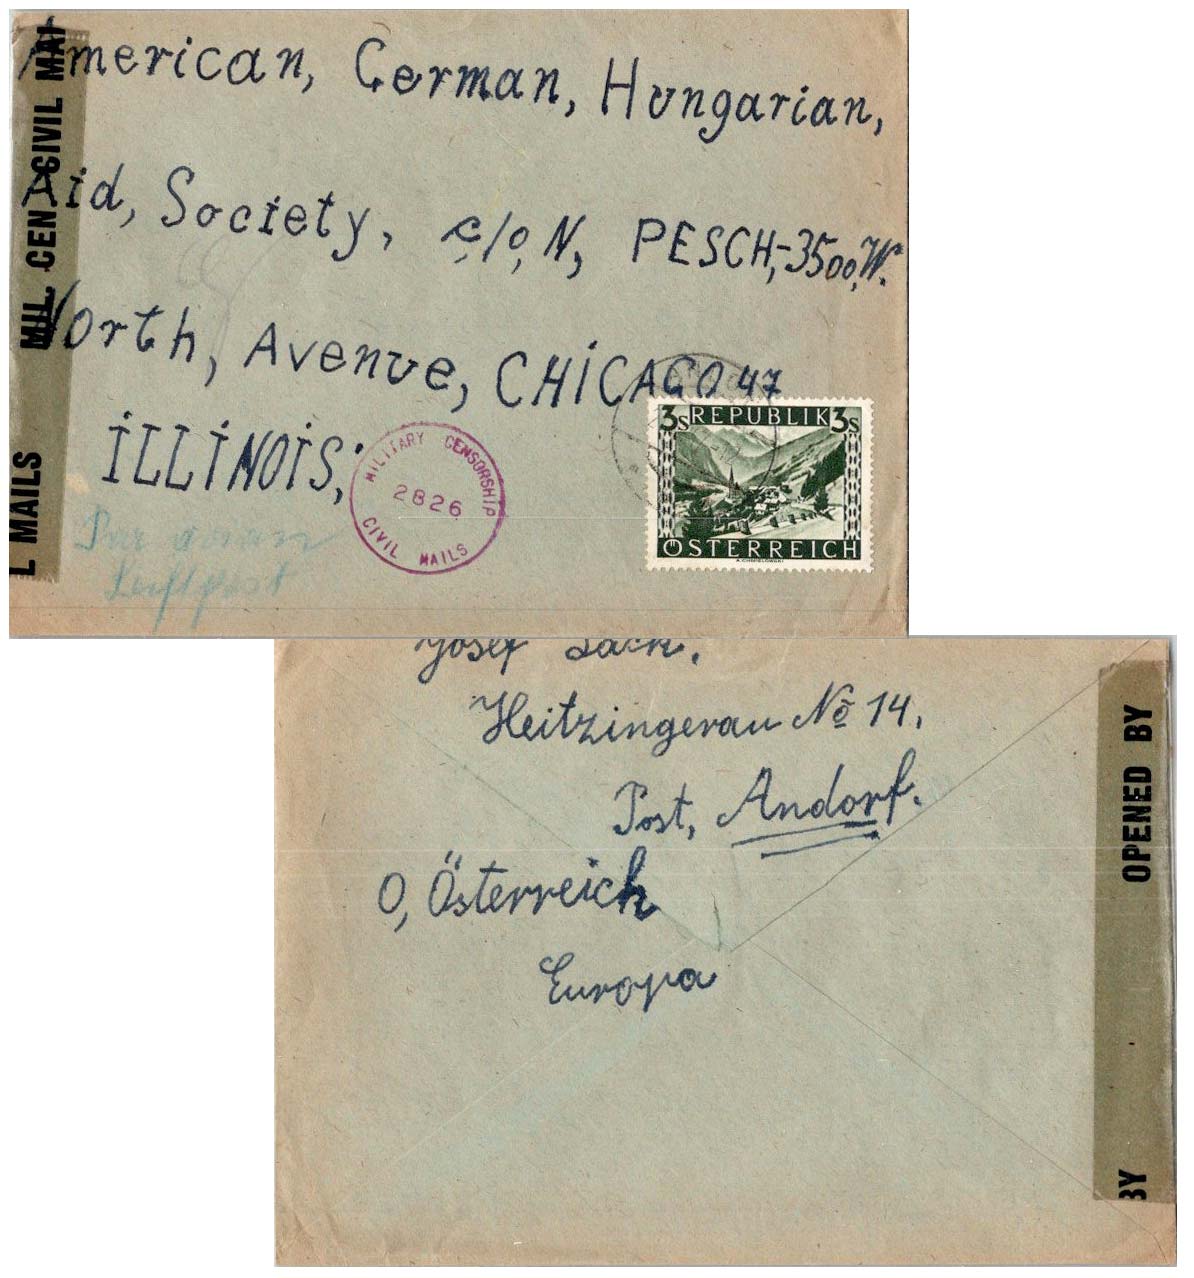 American, German, Hungarian,
Aid, Society, c/o, N, PESCH,-3500,W.
North, Avenue, CHICAGO 47
ILLINOIS;
Par avion
Luftpost
MIL. CEN. CIVIL MAI
L MAILS
MILITARY CENSORSHIP
2826
CIVIL MAILS
3s REPUBLIK 3s
ÖSTERREICH
Josef
Heitzingerau No 14.
Post, Andorf.
O, Österreich
Europa
OPENED BY
BY